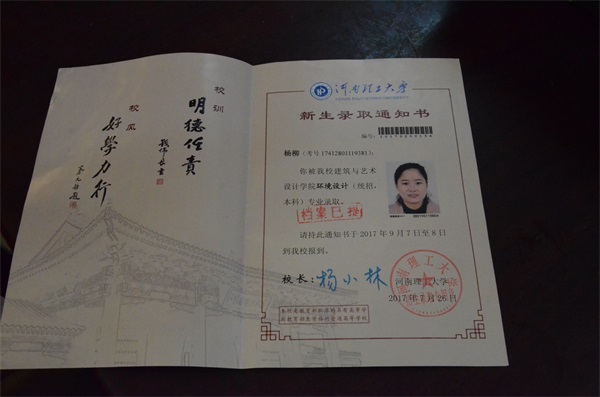 校训
明德任责
钱伟长書
校风
好學力行
河南理工大学
HENAN POLYTECHNIC UNIVERSITY
新生录取通知书
编号:
杨柳（考号17412801119381）:
你被我校建筑与艺术
设计学院环境设计（统招,
本科）专业录取。
档案已提
请持此通知书于2017年9月7日至8日
到我校报到。
校长: 杨小林
河南理工大学
河南理工大学
2017年7月26日